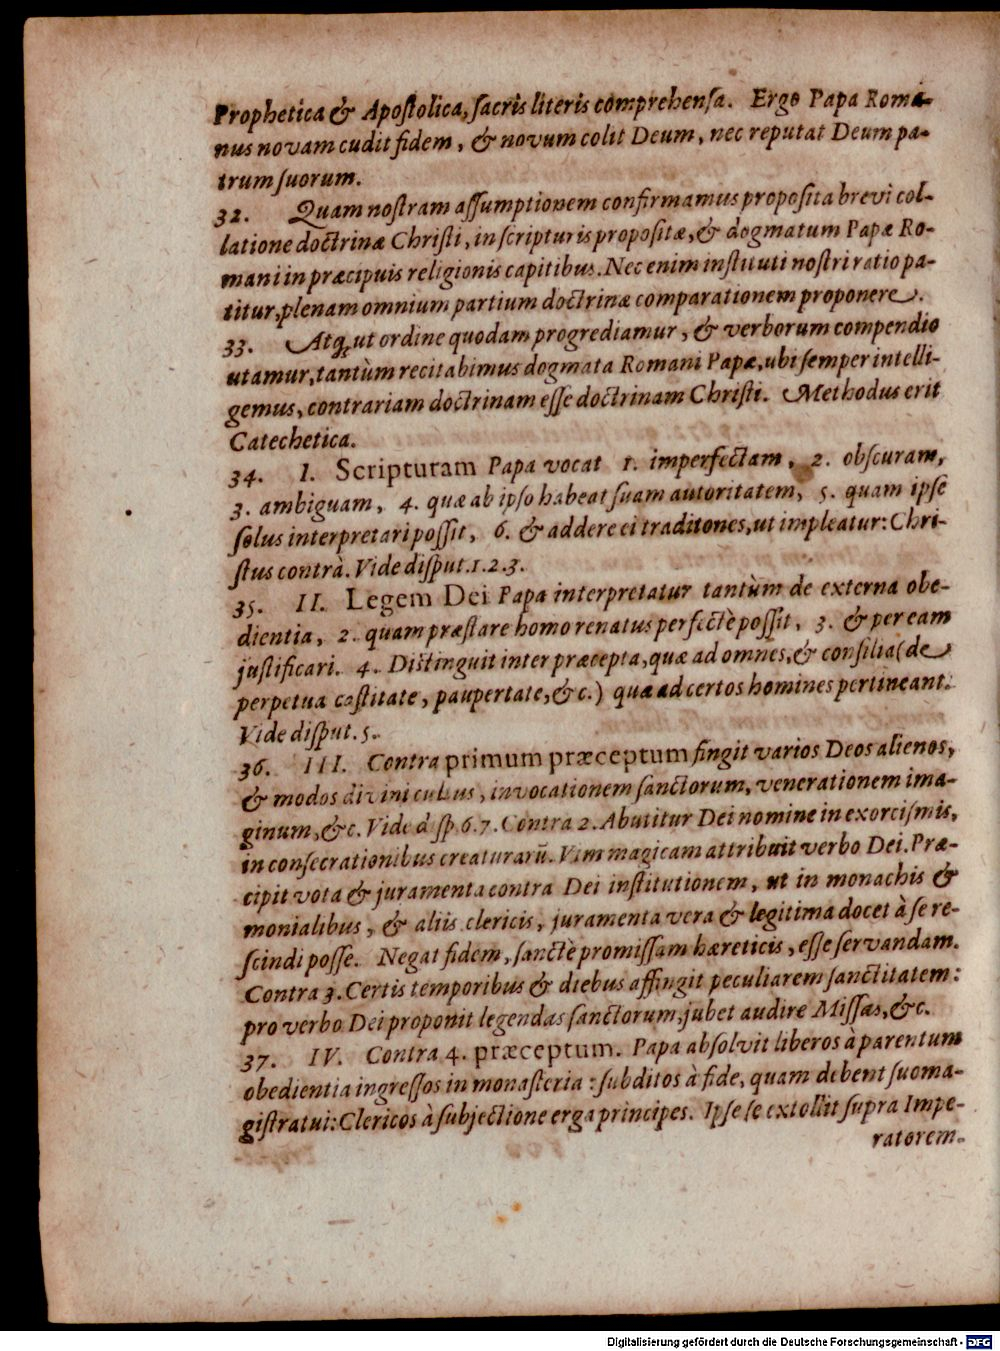 Prophetica & Apoſtolica, ſacris literis comprehenſa. Ergo Papa Roma-
nus novam cudit fidem, & novum colit Deum, nec reputat Deum pa-
trum ſuorum.
32. Quam noſtram aſſumptionem confirmamus propoſita brevi col-
latione doctrinæ Chriſti, in ſcripturis propoſitæ, & dogmatum Papæ Ro-
mani in præcipuis religionis capitibus. Nec enim inſtituti noſtri ratio pa-
titur, plenam omnium partium doctrinæ comparationem proponere.
33. Atq; ut ordine quodam progrediamur, & verborum compendio
utamur, tantùm recitabimus dogmata Romani Papæ, ubi ſemper intelli-
gemus, contrariam doctrinam eſſe doctrinam Chriſti. Methodus erit
Catechetica.
34. I. Scripturam Papa vocat 1. imperfectam, 2. obſcuram,
3. ambiguam, 4. quæ ab ipſo habeat ſuam autoritatem, 5. quam ipſe
ſolus interpretari poſſit, 6. & addere ei traditones, ut impleatur: Chri-
ſtus contrà. Vide diſput. 1. 2. 3.
35. II. Legem Dei Papa interpretatur tantùm de externa obe-
dientia, 2. quam præſtare homo renatus perfectè poſſit, 3. & per eam
juſtificari. 4. Diſtinguit inter præcepta, quæ ad omnes, & conſilia (de
perpetua caſtitate, paupertate, &c.) quæ ad certos homines pertineant.
Vide diſput. 5.
36. III. Contra primum præceptum fingit varios Deos alienos,
& modos divini cultus, invocationem ſanctorum, venerationem ima-
ginum, &c. Vide diſp. 6. 7. Contra 2. Abutitur Dei nomine in exorciſmis,
in conſecrationibus creaturarũ. Vim magicam attribuit verbo Dei. Præ-
cipit vota & juramenta contra Dei inſtitutionem, ut in monachis &
monialibus, & aliis clericis, juramenta vera & legitima docet à ſe re-
ſcindi poſſe. Negat fidem, ſanctè promiſſam hæreticis, eſſe ſervandam.
Contra 3. Certis temporibus & diebus affingit peculiarem ſanctitatem:
pro verbo Dei proponit legendas ſanctorum, jubet audire Miſſas, &c.
37. IV. Contra 4. præceptum. Papa abſolvit liberos à parentum
obedientia ingreſſos in monaſteria: ſubditos à fide, quam debent ſuo ma-
giſtratui: Clericos à ſubjectione erga principes. Ipſe ſe extollit ſupra Impe-
ratorem.
Digitalisierung gefördert durch die Deutsche Forschungsgemeinschaft - DFG